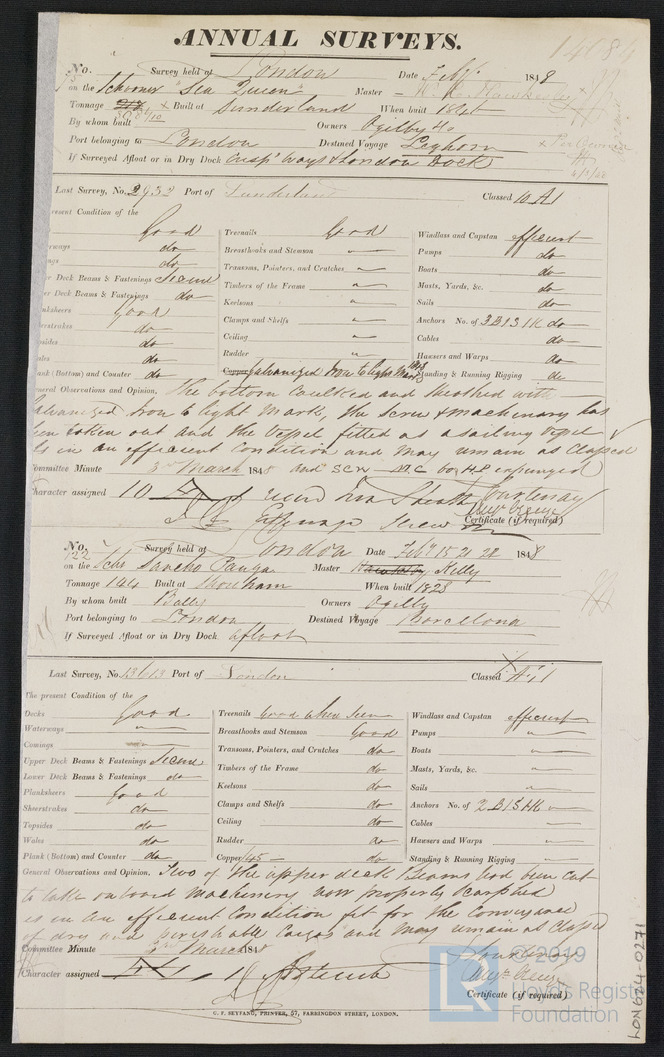 ANNUAL SURVEYS.
14684
No. Survey held at London Date Feby. 1848
on the Schooner "Sea Queen" Master
Tonnage Built at Sunderland When built
By whom built Owners Ogilby & Co
Port belonging to London Destined Voyage Leghorn
If Surveyed Afloat or in Dry Dock & London Dock
Last Survey, No. 2932 Port of Sunderland Classed 10 A1
resent Condition of the
Good Treenails Good Windlass and Capstan efficient
rways do Breasthooks and Stemson Pumps do
ngs do Transoms, Pointers, and Crutches Boats do
er Deck Beams & Fastenings Secure Timbers of the Frame Masts, Yards, &c. do
er Deck Beams & Fastenings do Keelsons Sails do
nksheers Good Clamps and Shelfs Anchors No. of 3B1S1K do
eerstrakes do Ceiling Cables do
psides do Rudder Hawsers and Warps do
ales do Copper Galvanized Iron to light Mark Standing & Running Rigging do
ank (Bottom) and Counter do
neral Observations and Opinion. The bottom caulked and sheathed with
alvanized Iron to light mark, the screw & machinery has
een taken out and the vessel fitted as a sailing vessel
is in an efficient condition and may remain as Classed
ommittee Minute 3rd March 1848 and SCW expunged
haracter assigned 10 A1 Courtenay
Certificate (if required)
Expunge Screw
No. 722 Survey held at London Date Feby 15 21 28 1848
on the Schr Sancho Panza Master Kelly
Tonnage 144 Built at Shoreham When built 1828
By whom built Balley Owners Ogilby
Port belonging to London Destined Voyage Barcellona
If Surveyed Afloat or in Dry Dock afloat
Last Survey, No. 13613 Port of London Classed
The present Condition of the
Decks Good Treenails Good when seen Windlass and Capstan efficient
Waterways Breasthooks and Stemson Good Pumps
Comings Transoms, Pointers, and Crutches do Boats
Upper Deck Beams & Fastenings Secure Timbers of the Frame do Masts, Yards, &c.
Lower Deck Beams & Fastenings do Keelsons do Sails
Planksheers Good Clamps and Shelfs do Anchors No. of 2B1S1K
Sheerstrakes do Ceiling do Cables
Topsides do Rudder do Hawsers and Warps
Wales do Copper/45 do Standing & Running Rigging
Plank (Bottom) and Counter do
General Observations and Opinion. Two of the upper deck Beams had been cut
to take onboard machinery now properly scarphed
is in an efficient condition fit for the conveyance
of dry and perishable cargos and may remain as Classed
Committee Minute 3rd March 1848 Courtenay
Character assigned
Certificate (if required)
C. F. SEYFANG, PRINTER, 57, FARRINGDON STREET, LONDON.
LON624-0271
© 2019
LR
Lloyd's Register
Foundation